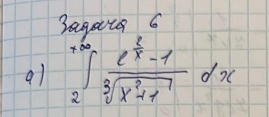 Задача 6
а) ∫₂^{+∞} (e^{2/x} - 1) / ∛(x² + 1) dx